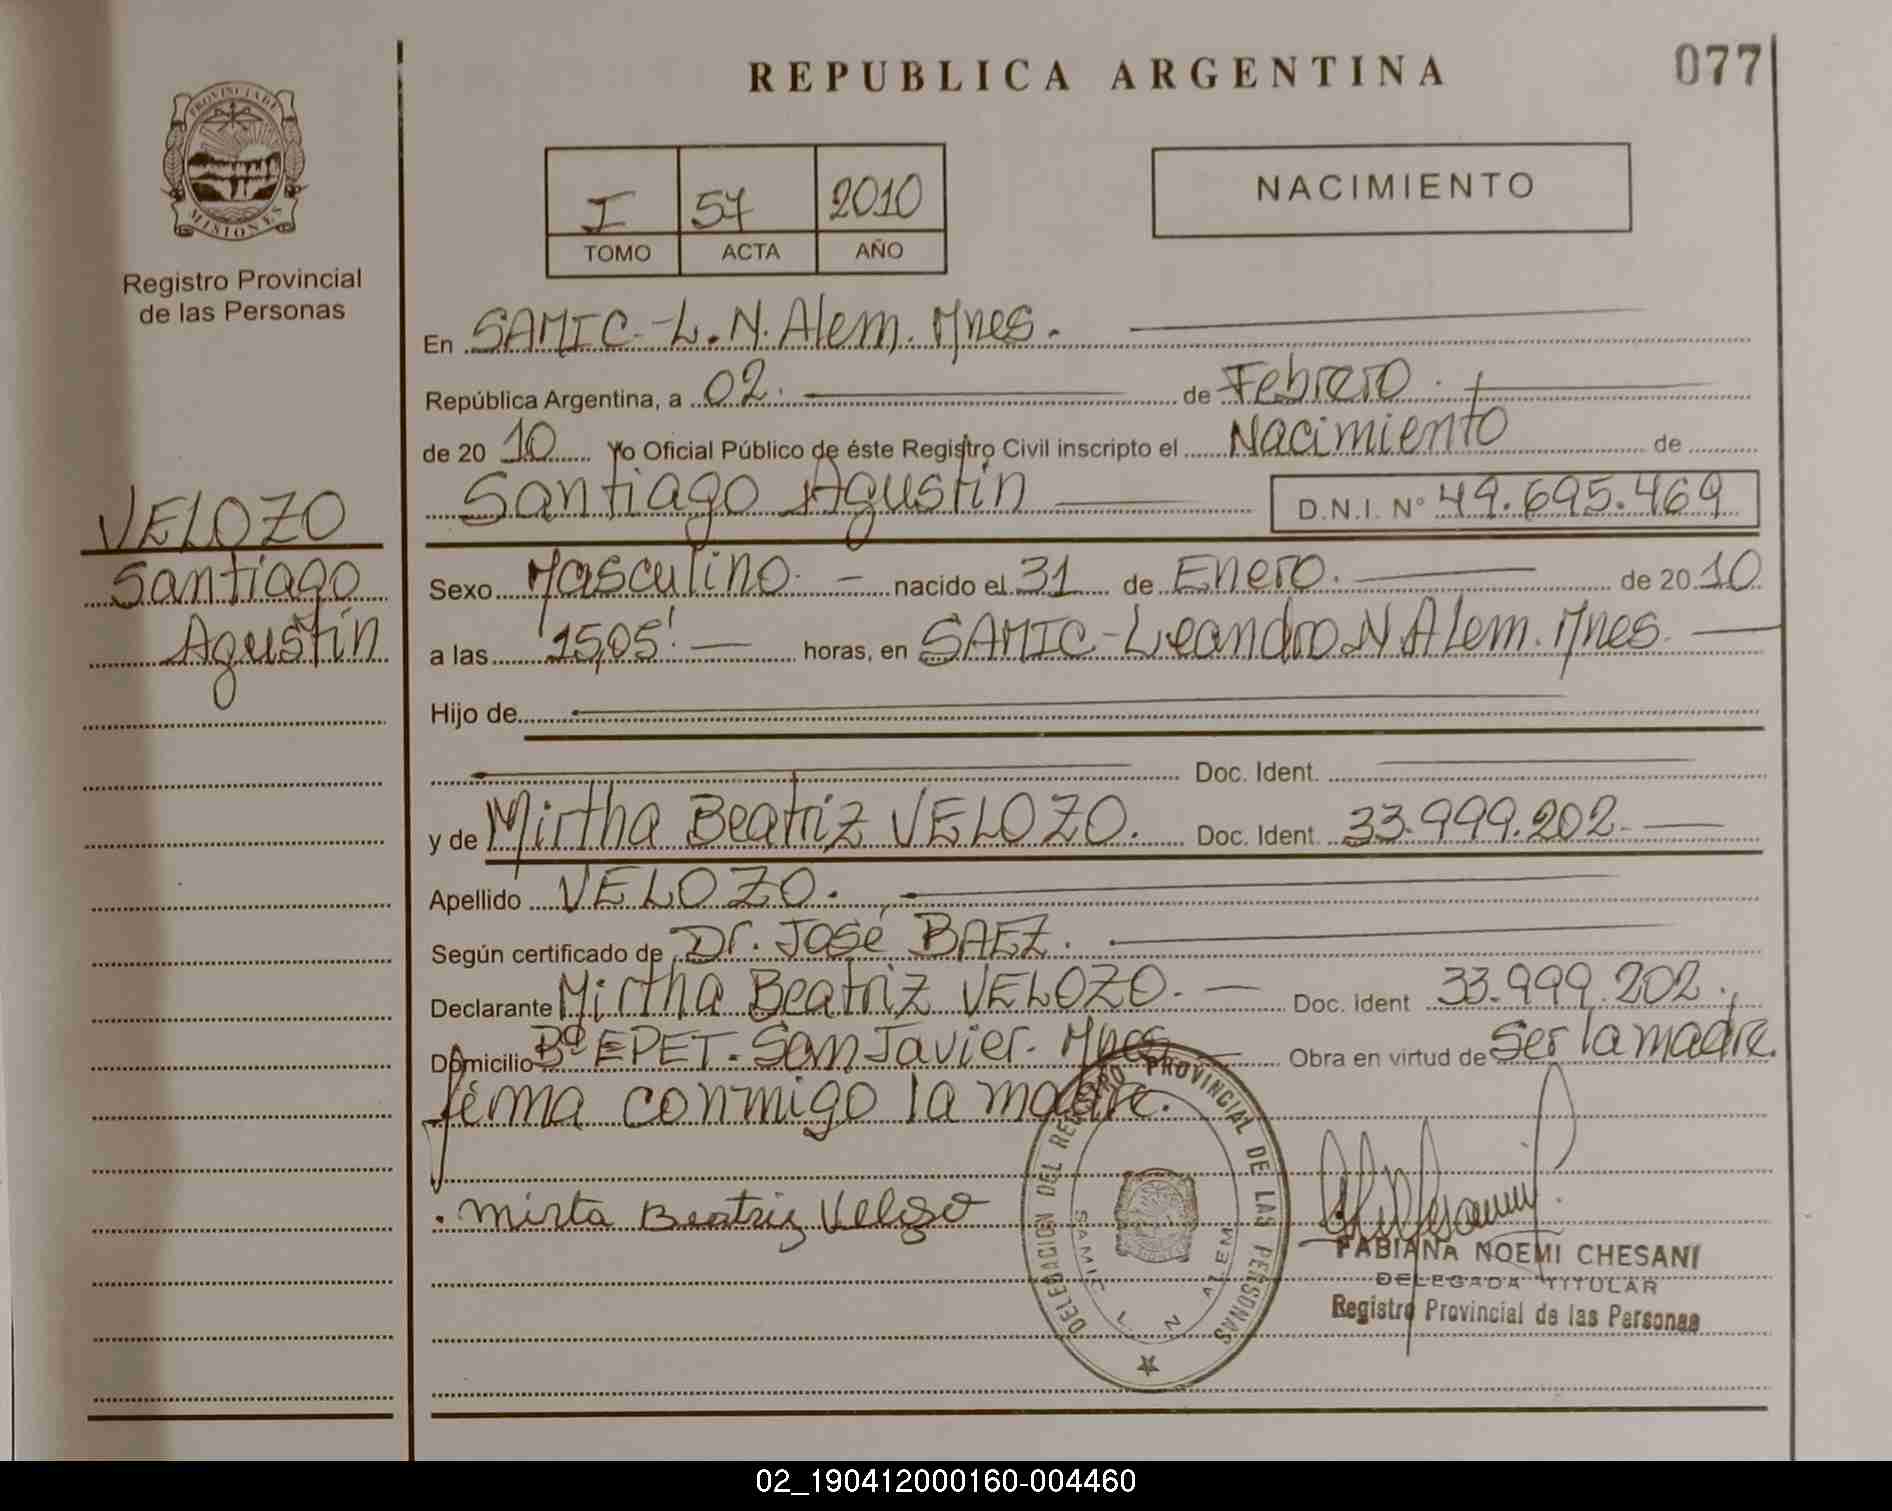 REPUBLICA ARGENTINA
077
PROVINCIA DE
MISIONES
Registro Provincial
de las Personas
I 57 2010
TOMO ACTA AÑO
NACIMIENTO
En SAMIC-L.N.Alem. Mnes.
República Argentina, a 02. de Febrero.
de 20 10 Yo Oficial Público de éste Registro Civil inscripto el Nacimiento de
Santiago Agustín D.N.I. Nº 49.695.469
VELOZO
Santiago
Agustín
Sexo Masculino. nacido el 31 de Enero. de 20 10
a las 15,05'. horas, en SAMIC-Leandro N Alem. Mnes.
Hijo de
Doc. Ident.
y de Mirtha Beatriz VELOZO. Doc. Ident. 33.999.202.
Apellido VELOZO.
Según certificado de Dr. José BAEZ.
Declarante Mirtha Beatriz VELOZO. Doc. Ident 33.999.202.,
Domicilio Bº EPET. San Javier. Mnes Obra en virtud de Ser la madre.
firma conmigo la madre.
. Mirta Beatriz Velozo
DELEGACION DEL REGISTRO PROVINCIAL DE LAS PERSONAS
SAMIC L. N ALEM
FABIANA NOEMI CHESANI
DELEGADA TITULAR
Registro Provincial de las Personas
02_190412000160-004460